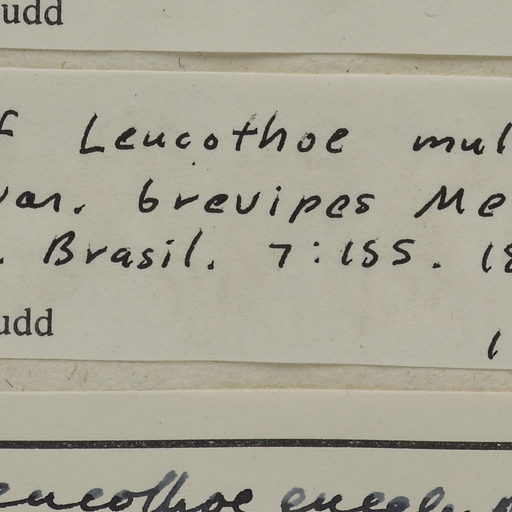 udd
f Leucothoe mul
var. brevipes Me
. Brasil. 7:155. 18
udd
1
eucothoe